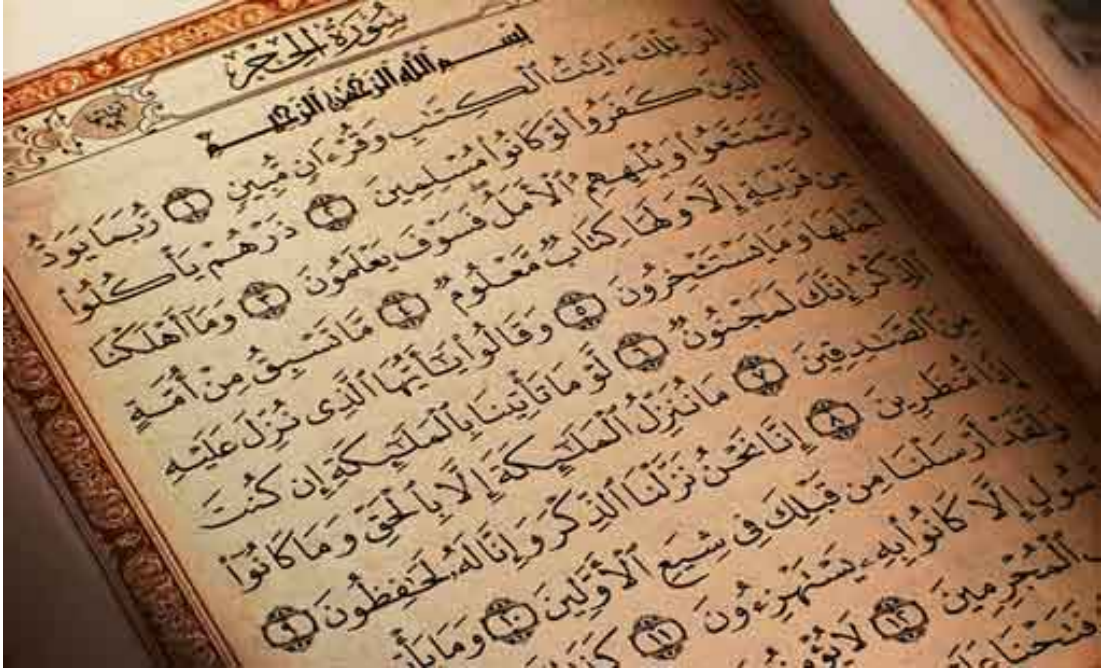 سُورَةُ الْحِجْرِ
بِسْمِ اللَّهِ الرَّحْمَٰنِ الرَّحِيمِ
الٓر تِلْكَ ءَايَٰتُ ٱلْكِتَٰبِ وَقُرْءَانٍ مُّبِينٍ ١ رُّبَمَا يَوَدُّ
ٱلَّذِينَ كَفَرُوا۟ لَوْ كَانُوا۟ مُسْلِمِينَ ٢ ذَرْهُمْ يَأْكُلُوا۟
وَيَتَمَتَّعُوا۟ وَيُلْهِهِمُ ٱلْأَمَلُ فَسَوْفَ يَعْلَمُونَ ٣ وَمَآ أَهْلَكْنَا
مِن قَرْيَةٍ إِلَّا وَلَهَا كِتَابٌ مَّعْلُومٌ ٤ مَّا تَسْبِقُ مِنْ أُمَّةٍ
أَجَلَهَا وَمَا يَسْتَـْٔخِرُونَ ٥ وَقَالُوا۟ يَٰٓأَيُّهَا ٱلَّذِى نُزِّلَ عَلَيْهِ
ٱلذِّكْرُ إِنَّكَ لَمَجْنُونٌ ٦ لَّوْ مَا تَأْتِينَا بِٱلْمَلَٰٓئِكَةِ إِن كُنتَ
مِنَ ٱلصَّٰدِقِينَ ٧ مَا نُنَزِّلُ ٱلْمَلَٰٓئِكَةَ إِلَّا بِٱلْحَقِّ وَمَا كَانُوٓا۟
إِذًا مُّنظَرِينَ ٨ إِنَّا نَحْنُ نَزَّلْنَا ٱلذِّكْرَ وَإِنَّا لَهُۥ لَحَٰفِظُونَ ٩
وَلَقَدْ أَرْسَلْنَا مِن قَبْلِكَ فِى شِيَعِ ٱلْأَوَّلِينَ ١٠ وَمَا
رَّسُولٍ إِلَّا كَانُوا۟ بِهِۦ يَسْتَهْزِءُونَ ١١
ٱلْمُجْرِمِينَ ١٢ لَا